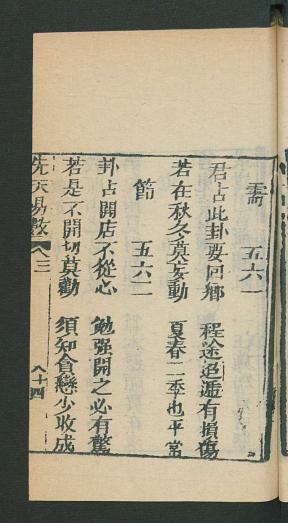 需　五六一
君占此卦要回鄉　程途迢遞有損傷
若在秋冬莫妄動　夏春二季也平常
節　五六二
卦占開店不從心　勉强開之必有驚
若是不開切莫勸　須知貪戀少收成
先天易數　八三　八十四